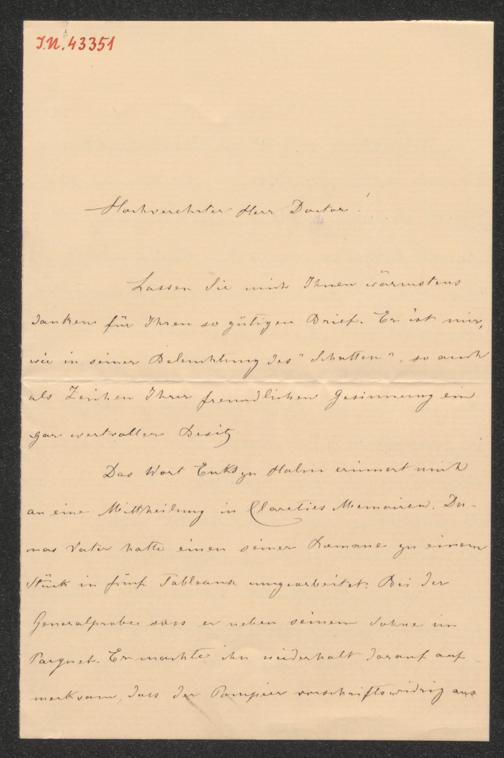 I.N. 43351
Hochverehrter Herr Doctor!
Lassen Sie mich Ihnen wärmstens
danken für Ihren so gütigen Brief. Er ist mir,
wie in seiner Beleuchtung des "Schatten", so auch
als Zeichen Ihrer freundlichen Gesinnung ein
gar wertvoller Besitz
Das Wort Enks zu Halm erinnert mich
an eine Mittheilung in Clareties Memoiren. Du-
mas Vater hatte einen seiner Romane zu einem
Stück in fünf Tableaux umgearbeitet. Bei der
Generalprobe sass er neben seinem Sohne im
Parquet. Er machte ihn wiederholt darauf auf-
merksam, dass der Pompier vorschriftswidrig aus